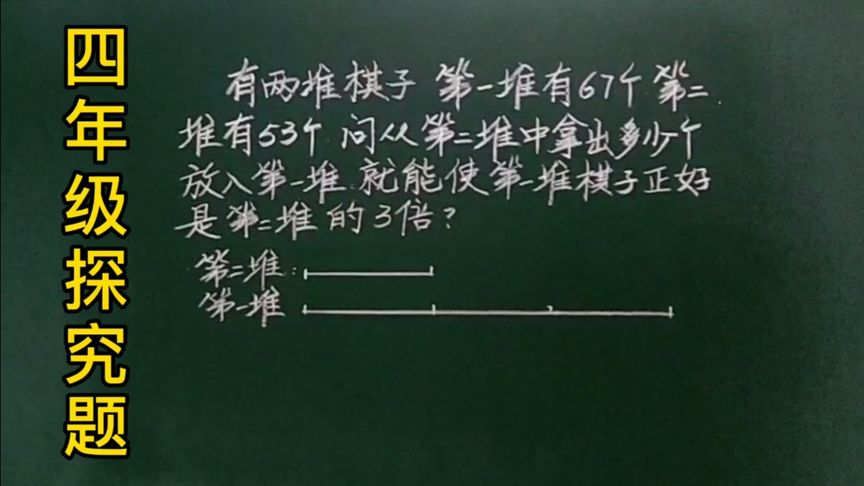 四年级探究题
有两堆棋子 第一堆有67个 第二
堆有53个 问从第二堆中拿出多少个
放入第一堆 就能使第一堆棋子正好
是第二堆的3倍?
第二堆:
第一堆